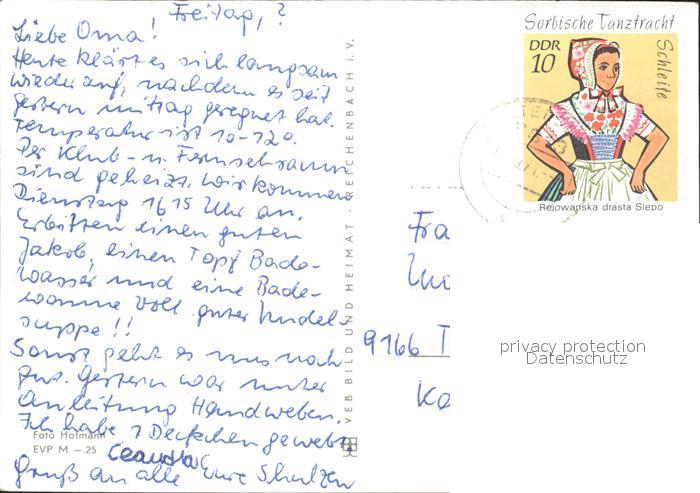 Freitag, ?
Liebe Oma!
Heute klärt es sich langsam
wieder auf, nachdem es seit
gestern mittag geregnet hat.
Temperatur ist 10-12°.
Der Klub- u. Fernsehraum
sind geheizt. Wir kommen
Dienstag 16 15 Uhr an.
Erbitten einen guten
Jakob, einen Topf Bade-
wasser und eine Bade-
wanne voll guter Nudel-
suppe !!
Sonst geht es uns noch
gut. Gestern war unter
Anleitung Handweben.
Ich habe 2 Deckchen gewebt.
Claudia
Gruß an alle Eure Schulzen
Foto Hofmann
EVP M –.25
VEB BILD UND HEIMAT · REICHENBACH I. V.
Sorbische Tanztracht
DDR
10
Schleife
Rejowanska drasta Slepo
Fra
9166 T
privacy protection
Datenschutz